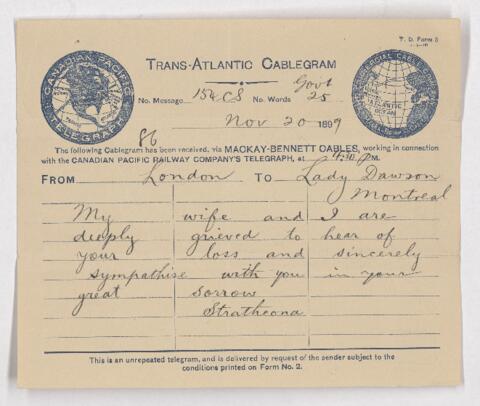 T. D. Form 3
TRANS-ATLANTIC CABLEGRAM
CANADIAN PACIFIC
TELEGRAPH
COMMERCIAL CABLE
ATLANTIC OCEAN
Govt
No. Message 154CS No. Words 25
Nov 20 1899
86
The following Cablegram has been received, via MACKAY-BENNETT CABLES, working in connection
with the CANADIAN PACIFIC RAILWAY COMPANY'S TELEGRAPH, at M.
FROM London TO Lady Dawson
Montreal
My wife and I are
deeply grieved to hear of
your loss and sincerely
sympathise with you in your
great sorrow
Strathcona
This is an unrepeated telegram, and is delivered by request of the sender subject to the
conditions printed on Form No. 2.